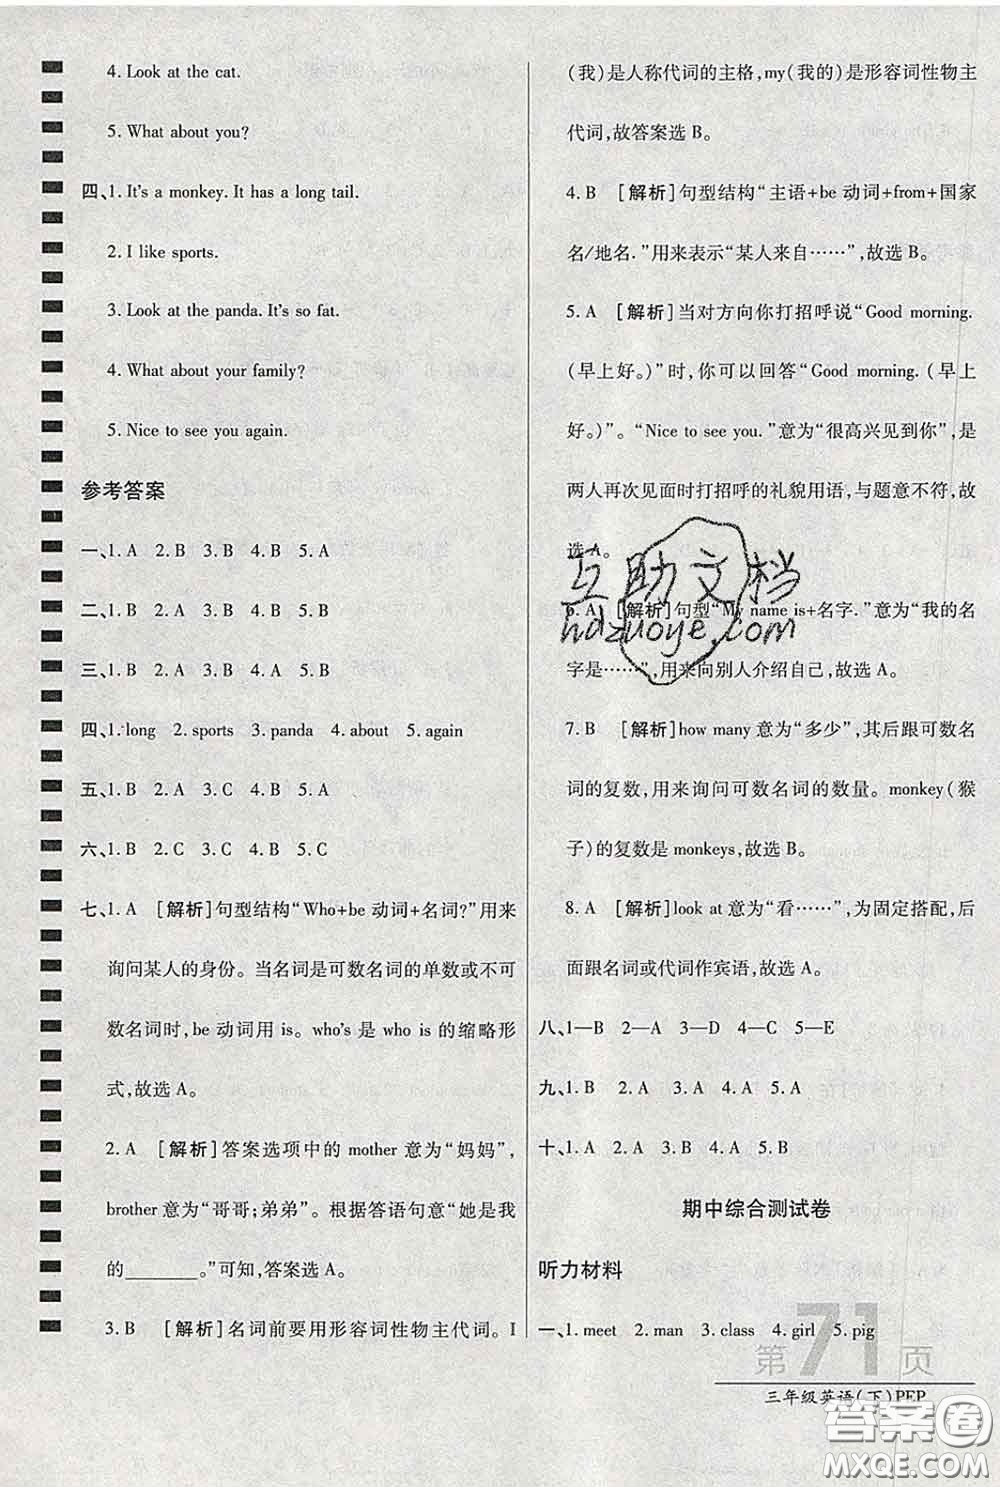 4. Look at the cat.
5. What about you?
四、1. It's a monkey. It has a long tail.
2. I like sports.
3. Look at the panda. It's so fat.
4. What about your family?
5. Nice to see you again.
参考答案
一、1. A 2. B 3. B 4. B 5. A
二、1. B 2. A 3. B 4. A 5. B
三、1. B 2. A 3. B 4. A 5. B
四、1. long 2. sports 3. panda 4. about 5. again
五、1. B 2. A 3. C 4. B 5. A
六、1. B 2. C 3. C 4. B 5. C
七、1. A [解析]句型结构“Who+be 动词+名词?”用来
询问某人的身份。当名词是可数名词的单数或不可
数名词时,be 动词用 is。who's 是 who is 的缩略形
式,故选 A。
2. A [解析]答案选项中的 mother 意为“妈妈”,
brother 意为“哥哥;弟弟”。根据答语句意“她是我
的________。”可知,答案选 A。
3. B [解析]名词前要用形容词性物主代词。I
(我)是人称代词的主格,my(我的)是形容词性物主
代词,故答案选 B。
4. B [解析]句型结构“主语+be 动词+from+国家
名/地名.”用来表示“某人来自……”,故选 B。
5. A [解析]当对方向你打招呼说“Good morning.
(早上好。)”时,你可以回答“Good morning. (早上
好。)”。“Nice to see you.”意为“很高兴见到你”,是
两人再次见面时打招呼的礼貌用语,与题意不符,故
选 A。
6. A [解析]句型“My name is+名字.”意为“我的名
字是……”,用来向别人介绍自己,故选 A。
7. B [解析]how many 意为“多少”,其后跟可数名
词的复数,用来询问可数名词的数量。monkey(猴
子)的复数是 monkeys,故选 B。
8. A [解析]look at 意为“看……”,为固定搭配,后
面跟名词或代词作宾语,故选 A。
八、1—B 2—A 3—D 4—C 5—E
九、1. B 2. A 3. A 4. A 5. A
十、1. A 2. B 3. B 4. A 5. B
期中综合测试卷
听力材料
一、1. meet 2. man 3. class 4. girl 5. pig
第71页
三年级英语(下)PEP
互助文档
hdzuoye.com
答案圈
MXQE.COM